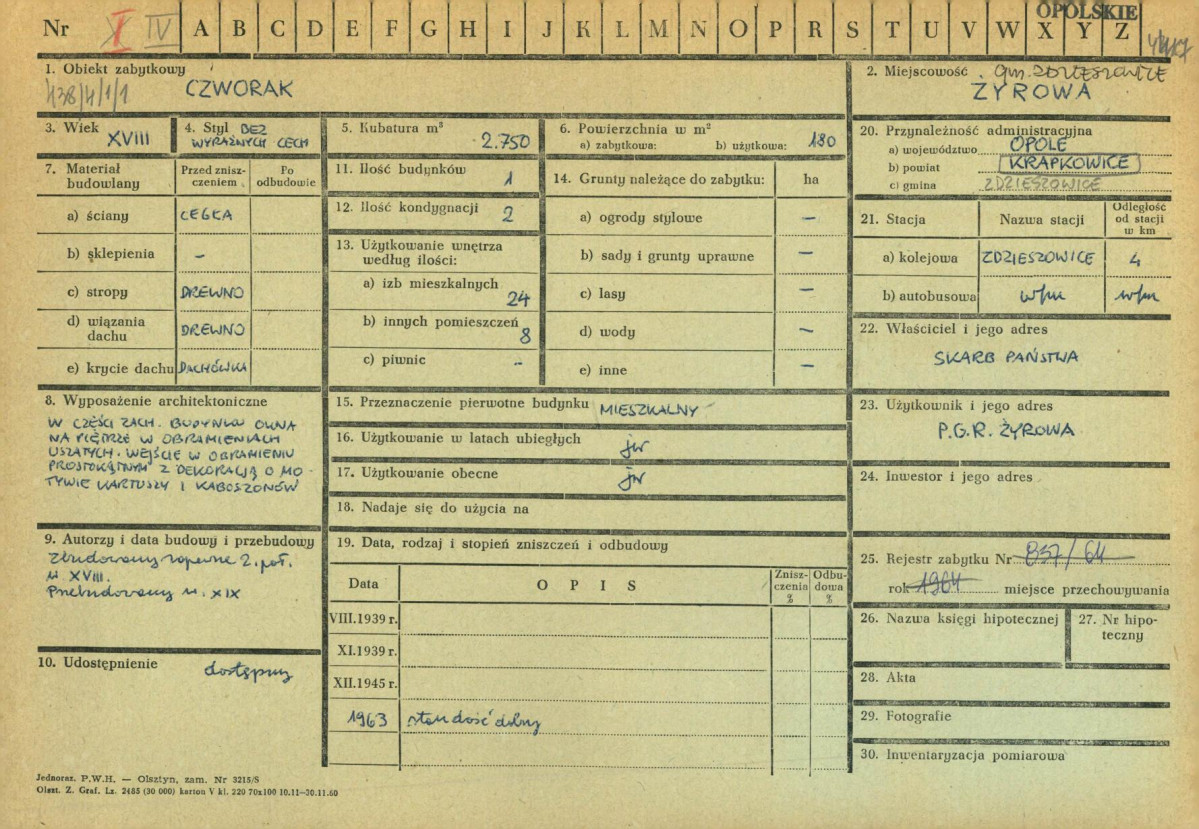 OPOLSKIE
Nr I IV A B C D E F G H I J K L M N O P R S T U V W X Y Z
1. Obiekt zabytkowy
CZWORAK
2. Miejscowość gm. ZDZIESZOWICE
ŻYROWA
3. Wiek XVIII
4. Styl BEZ
WYRAŹNYCH CECH
5. Kubatura m³ 2.750
6. Powierzchnia w m²
a) zabytkowa: b) użytkowa: 180
7. Materiał
budowlany
Przed znisz-
czeniem
Po
odbudowie
a) ściany CEGŁA
b) sklepienia -
c) stropy DREWNO
d) wiązania
dachu DREWNO
e) krycie dachu DACHÓWKA
8. Wyposażenie architektoniczne
W CZĘŚCI ZACH. BUDYNKU OKNA
NA PIĘTRZE W OBRAMIENIACH
USZATYCH. WEJŚCIE W OBRAMIENIU
PROSTOKĄTNYM Z DEKORACJĄ O MO-
TYWIE KARTUSZY I KABOSZONÓW
9. Autorzy i data budowy i przebudowy
Zbudowany zapewne 2. poł.
w. XVIII.
Przebudowany w. XIX
10. Udostępnienie dostępny
11. Ilość budynków 1
12. Ilość kondygnacji 2
13. Użytkowanie wnętrza
według ilości:
a) izb mieszkalnych
24
b) innych pomieszczeń
8
c) piwnic -
14. Grunty należące do zabytku: ha
a) ogrody stylowe -
b) sady i grunty uprawne -
c) lasy -
d) wody -
e) inne -
15. Przeznaczenie pierwotne budynku MIESZKALNY
16. Użytkowanie w latach ubiegłych jw
17. Użytkowanie obecne jw
18. Nadaje się do użycia na
19. Data, rodzaj i stopień zniszczeń i odbudowy
Data
OPIS
Znisz-
czenia
%
Odbu-
dowa
%
VIII.1939 r.
XI.1939 r.
XII.1945 r.
1963 stan dość dobry
20. Przynależność administracyjna
a) województwo OPOLE
b) powiat KRAPKOWICE
c) gmina ZDZIESZOWICE
21. Stacja
Nazwa stacji
Odległość
od stacji
w km
a) kolejowa ZDZIESZOWICE 4
b) autobusowa w/m w/m
22. Właściciel i jego adres
SKARB PAŃSTWA
23. Użytkownik i jego adres
P.G.R. ŻYROWA
24. Inwestor i jego adres
25. Rejestr zabytku Nr 857/64
rok 1964 miejsce przechowywania
26. Nazwa księgi hipotecznej
27. Nr hipo-
teczny
28. Akta
29. Fotografie
30. Inwentaryzacja pomiarowa
Jednoraz. P.W.H. — Olsztyn, zam. Nr 3215/S
Olszt. Z. Graf. Lz. 2485 (30 000) karton V kl. 220 70x100 10.11—30.11.60